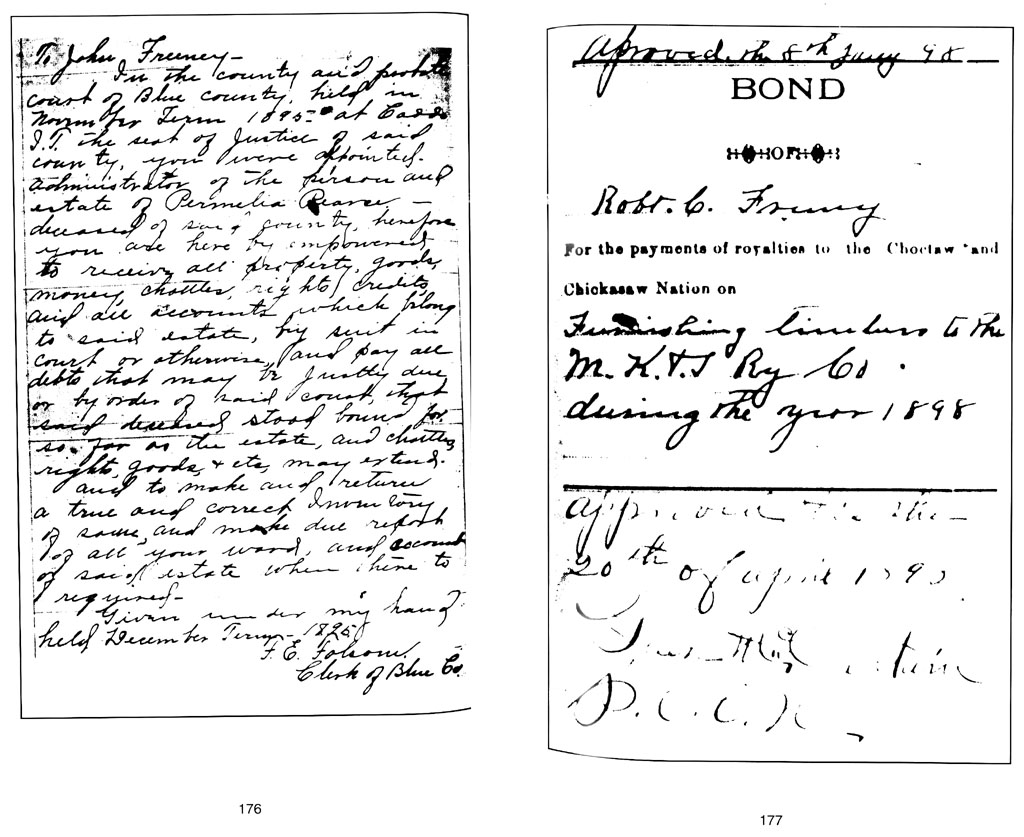 To John Freeney-
In the county and probate
court of Blue county, held in
November Term 1895- at Caddo
I.T. the seat of Justice of said
county, you were appointed.
administrator of the person and
estate of Permelia Pearse -
deceased of said county, herefore
you are here by empowered
to receive all property, goods,
money, chattles, rights, credits
and all accounts which belong
to said estate, by suit in
court or otherwise, and pay all
debts that may be justly due
or by order of said court, that
said deseased stood bound for
so far as the estate, and chattles,
rights, goods, & etc, may extend.
and to make and return
a true and correct Inventory
of same, and make due report
of all your ward, and account
of said estate when there to
required-
Given under my hand
held December Term- 1895
F. E. Folsom.
Clerk of Blue Co.
176
Aproved. the 8th Jany 98
BOND
OF
Robt. C. Freeny
For the payments of royalties to the Choctaw and
Chickasaw Nation on
Furnishing timbers to the
M. K. & T Ry Co.
during the year 1898
approved this the
20th of april
177